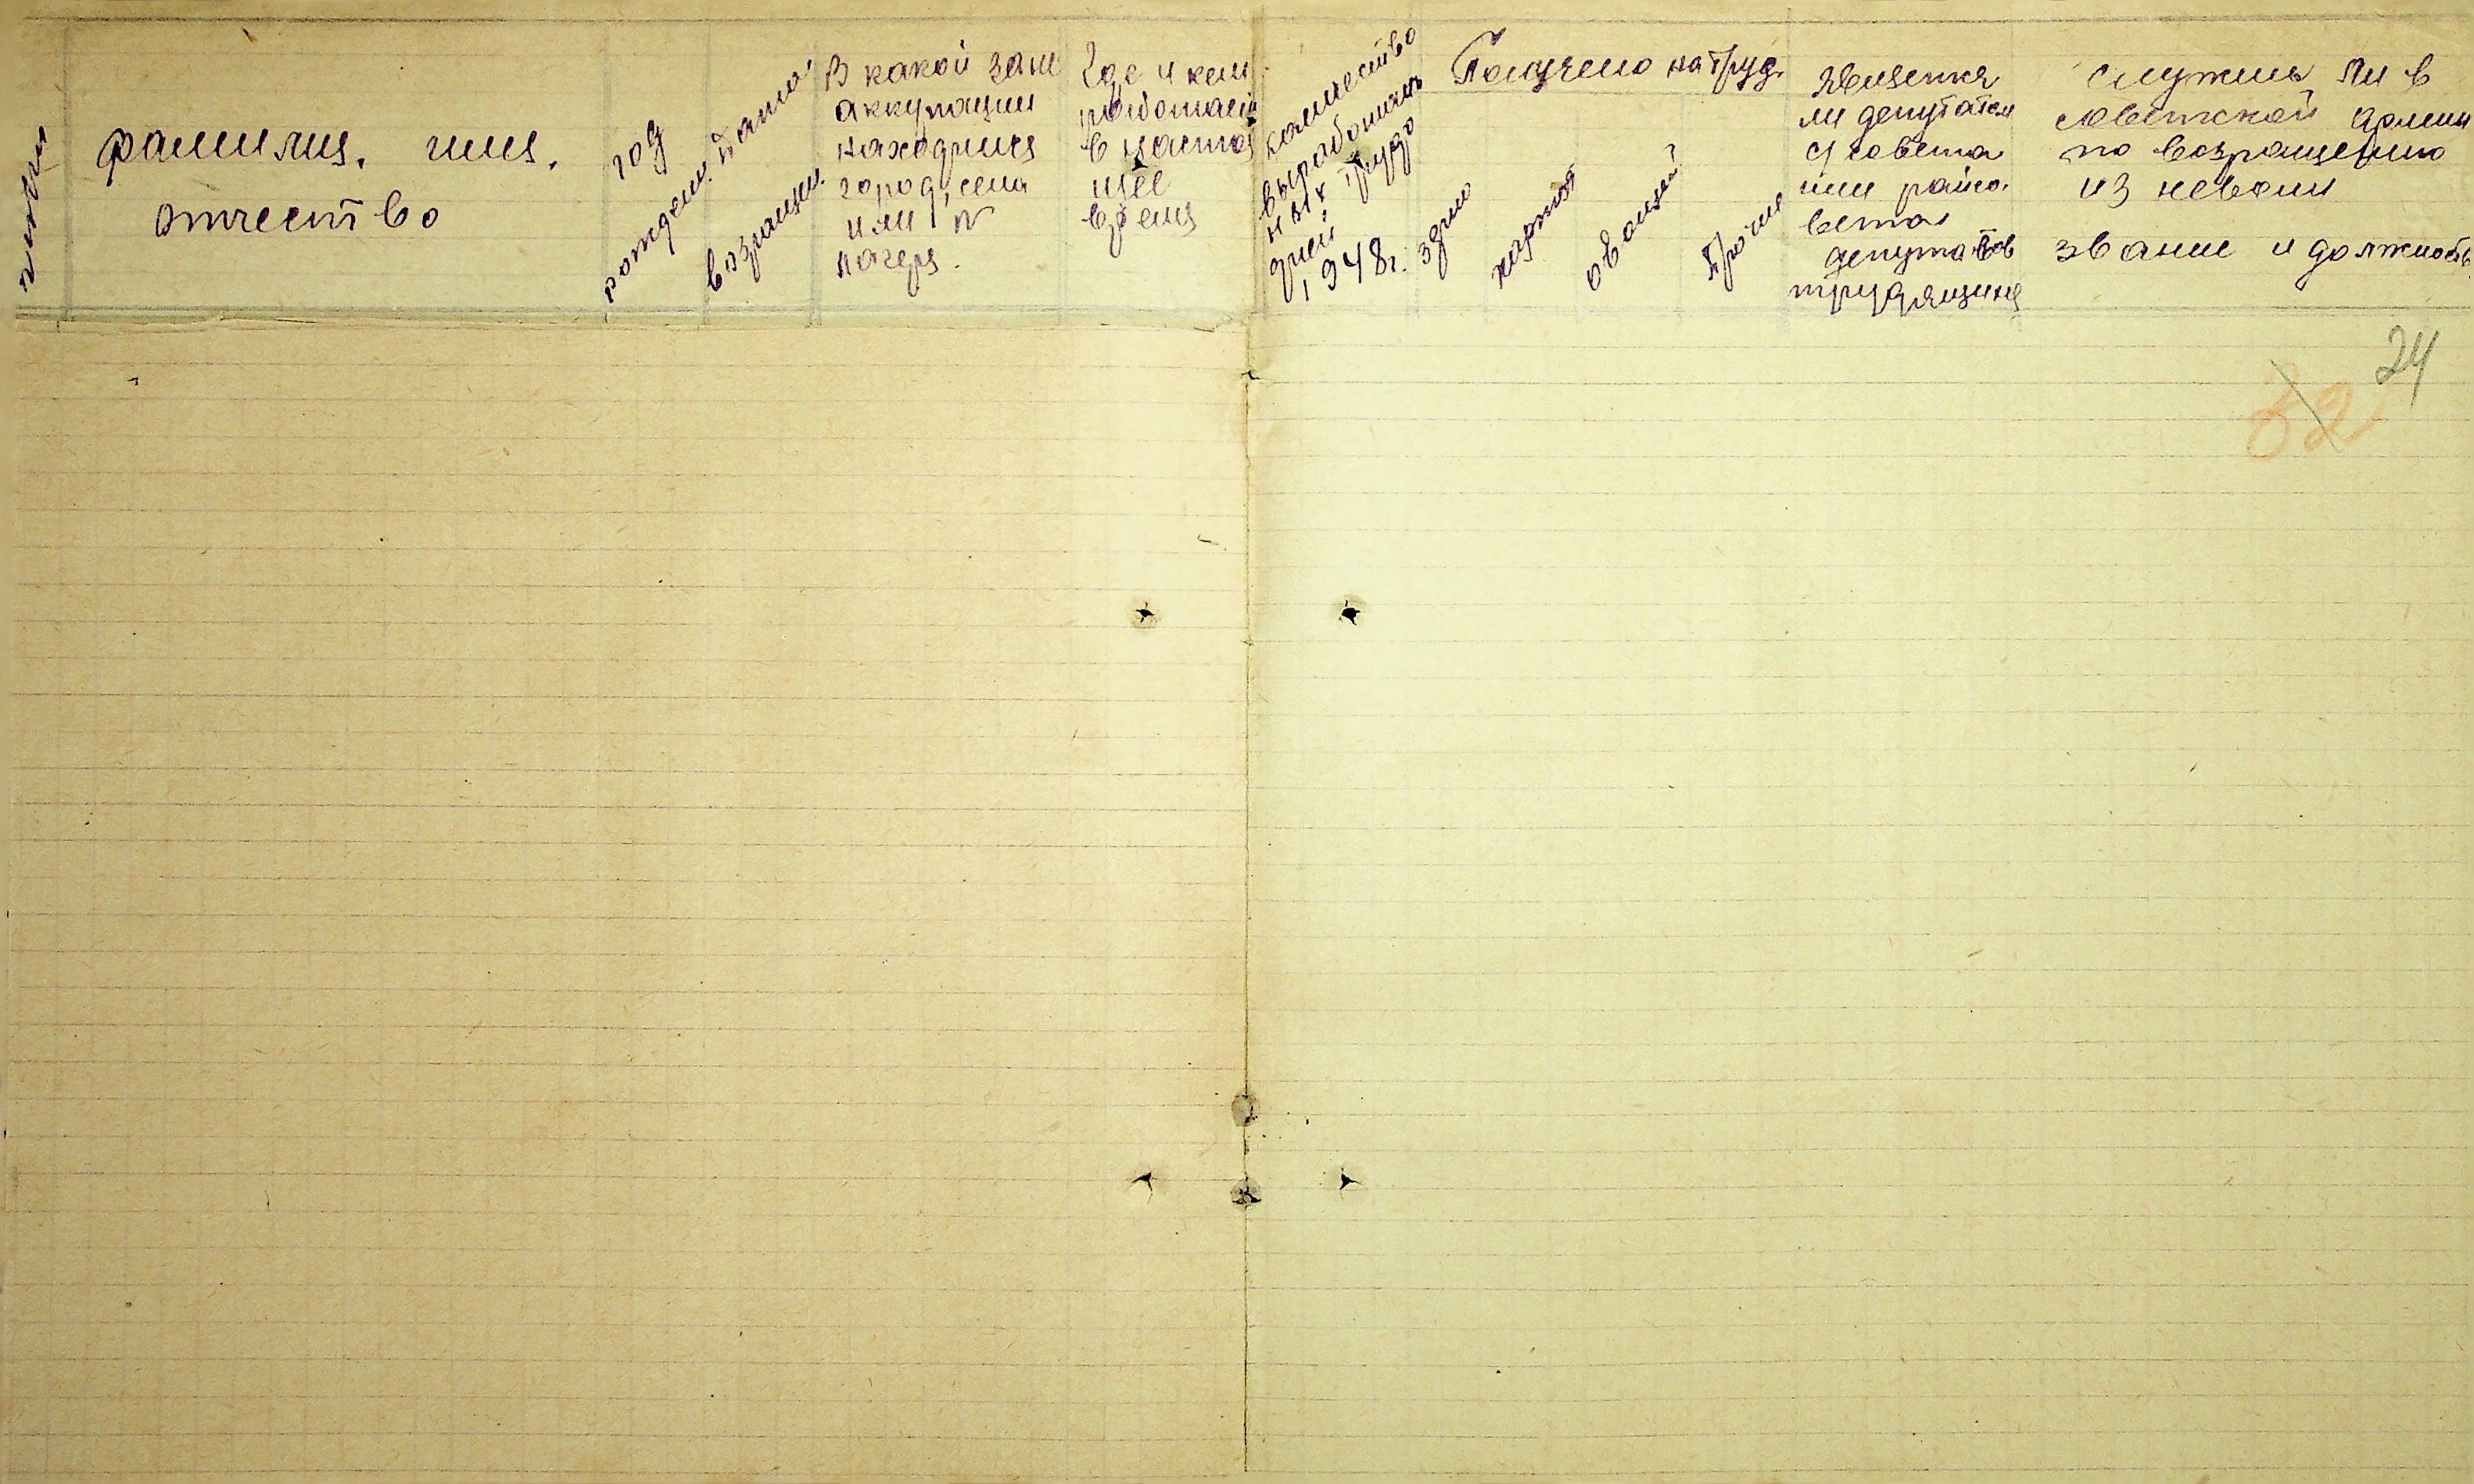 n п/п
фамилия, имя,
отчество
год
рожден.
дата
возращен.
В какой зоне
аккупации
находился
город, села
или №
лагеря.
Где и кем
работает
в настоя
щее
время
количество
выработан
ных трудо
дней
1948г.
Получено на труд.
зерно
картоф
овощей
Проче
Является
ли депутатом
с/совета
или райсо.
вета
депутатов
трудящихся
служил ли в
советской армии
по возращению
из неволи
звание и должность
24
82